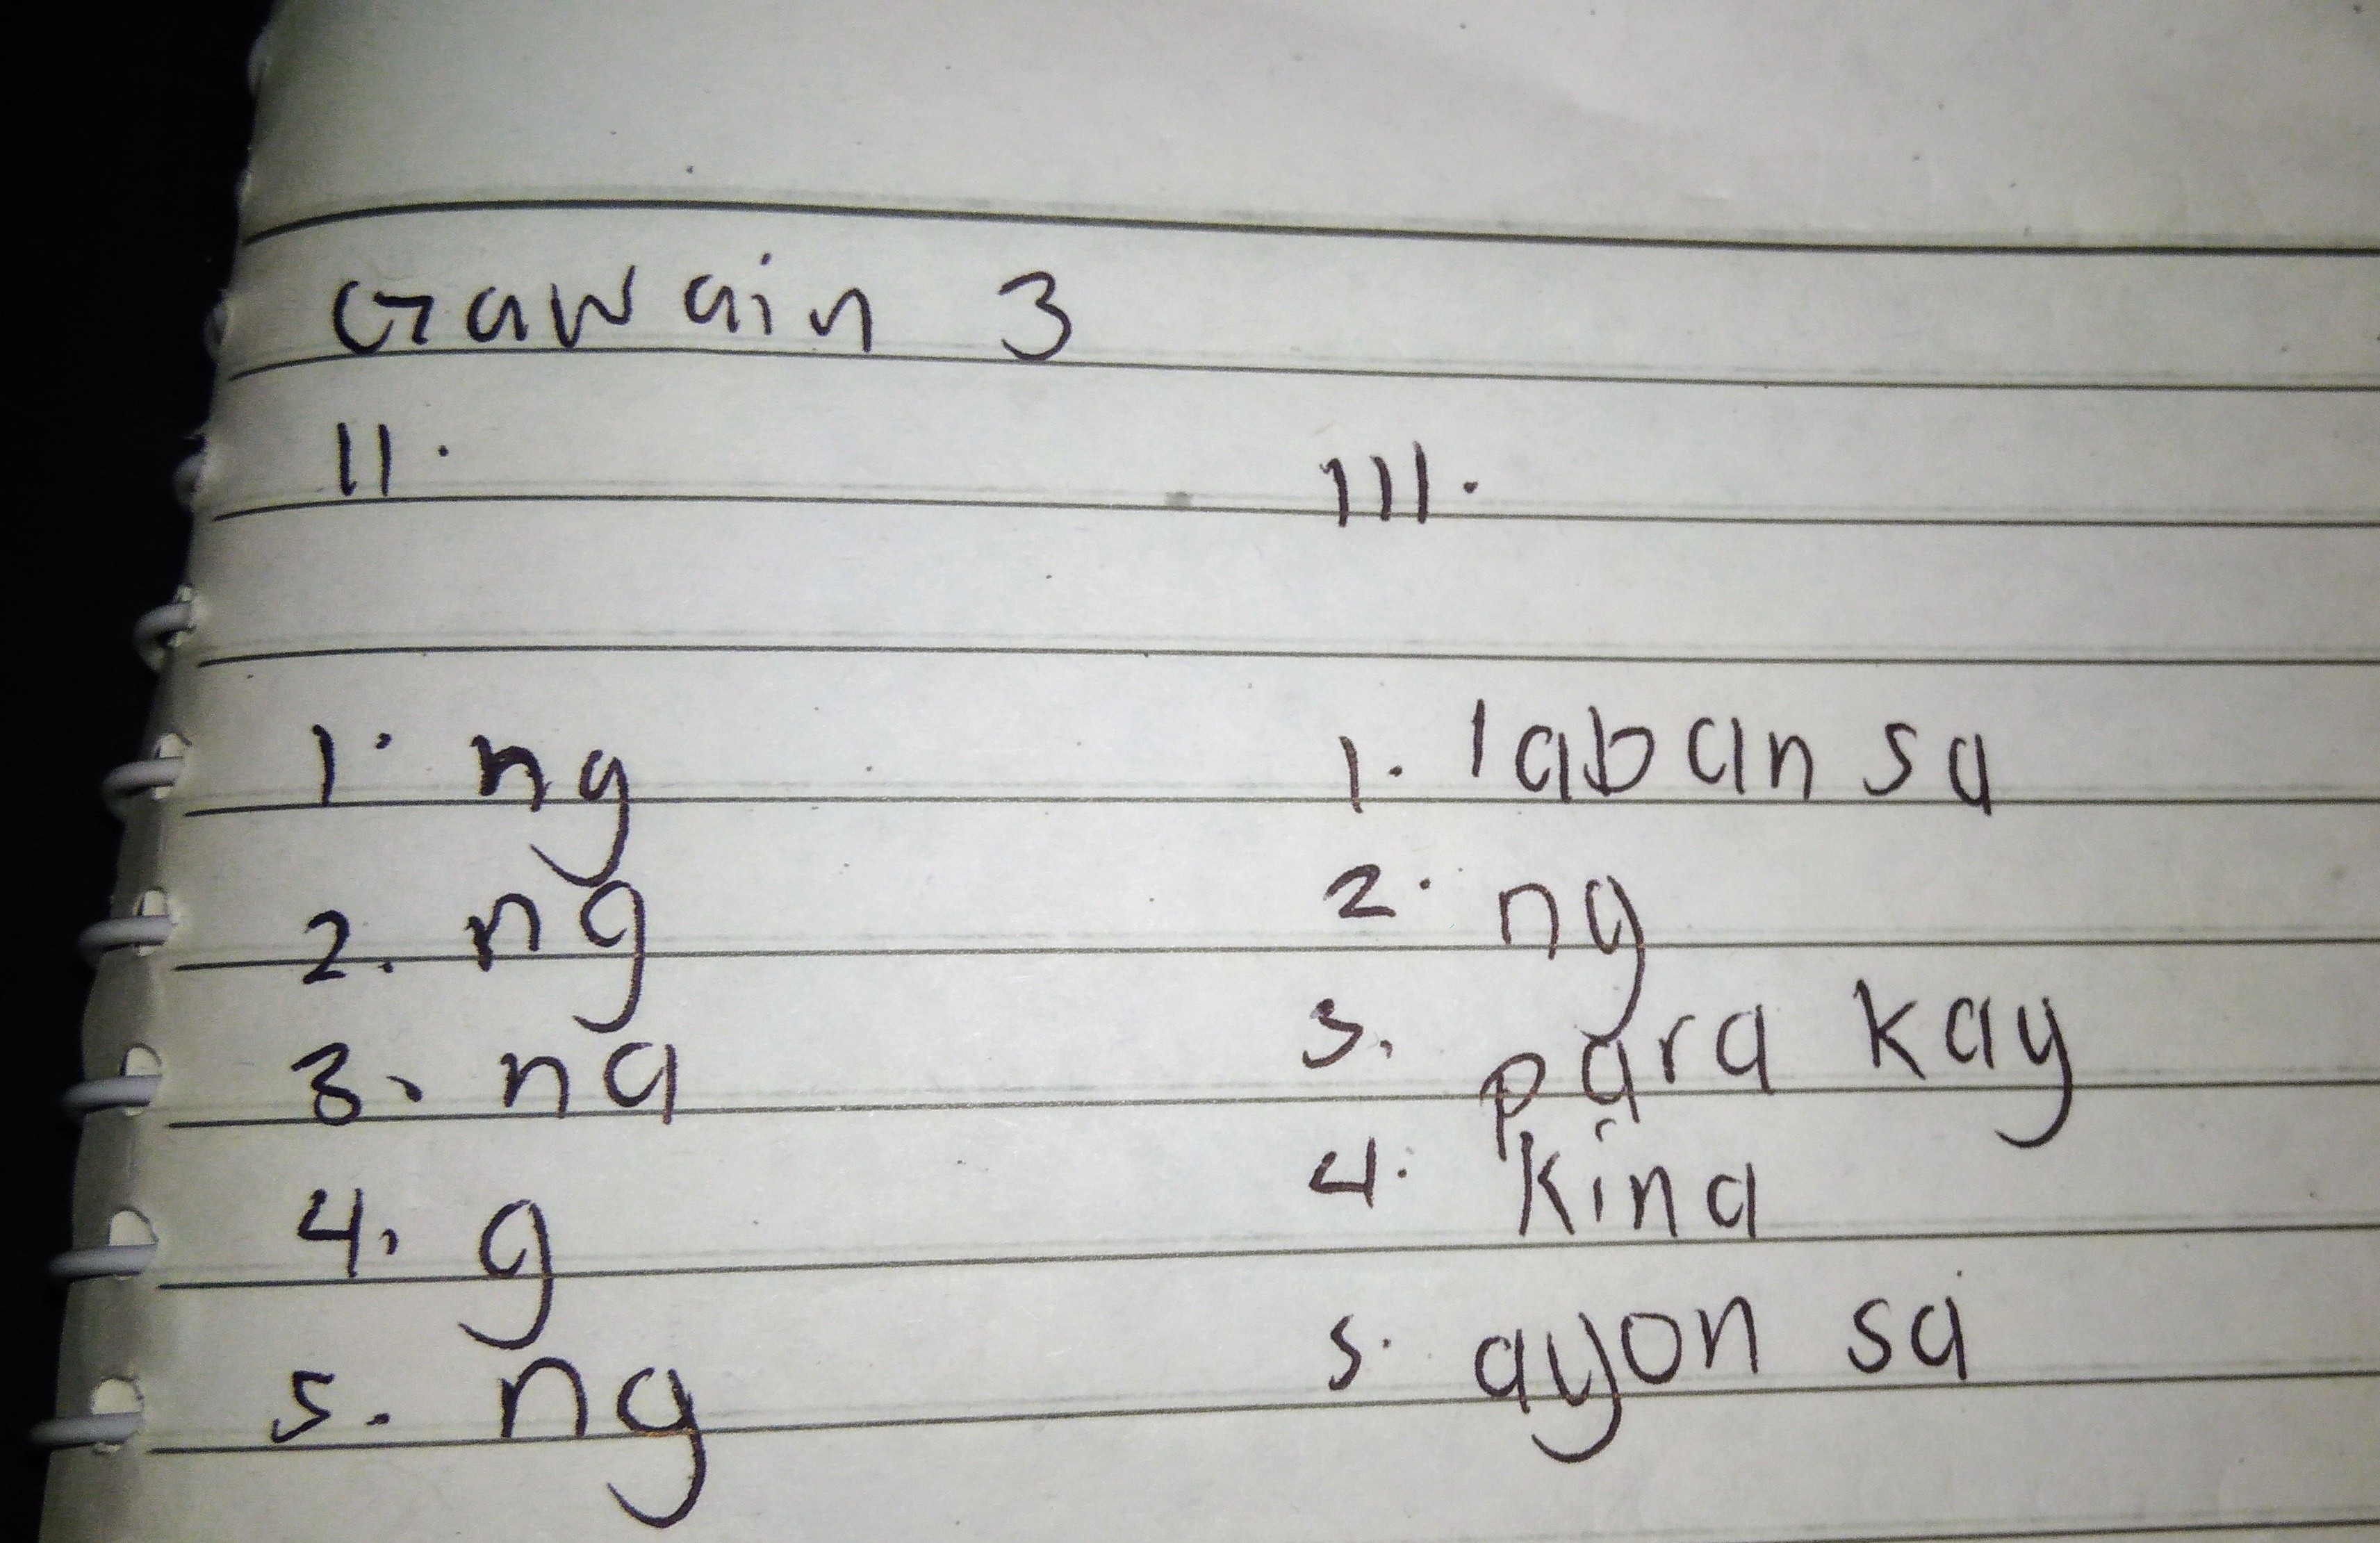 Gawain 3
II.
1. ng
2. ng
3. na
4. g
5. ng
III.
1. laban sa
2. ng
3. para kay
4. kina
5. ayon sa